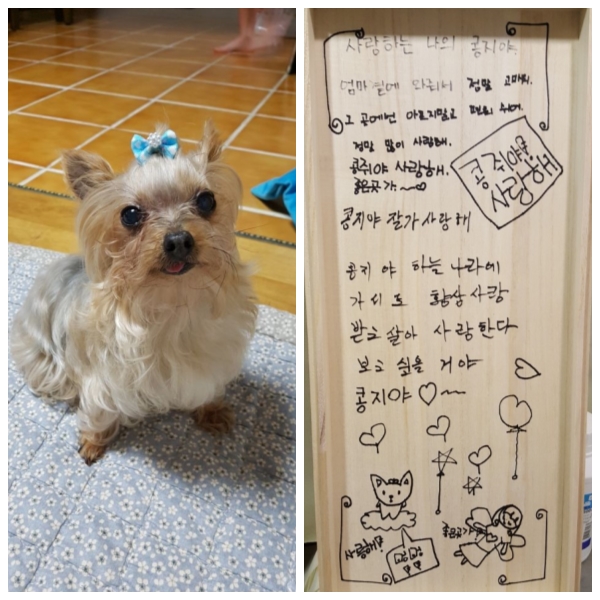 사랑하는 나의 콩지야.
엄마 곁에 와줘서 정말 고마워.
그 곳에선 아프지말고 편히 쉬어.
정말 많이 사랑해.
콩쥐야 사랑해.
좋은곳가~♡
콩쥐야
사랑해
콩지야 잘가 사랑해
콩지야 하늘나라에
가서도 항상 사랑
받고 살아 사랑한다
보고 싶을 거야
콩지야 ♡~
사랑해
좋은곳가